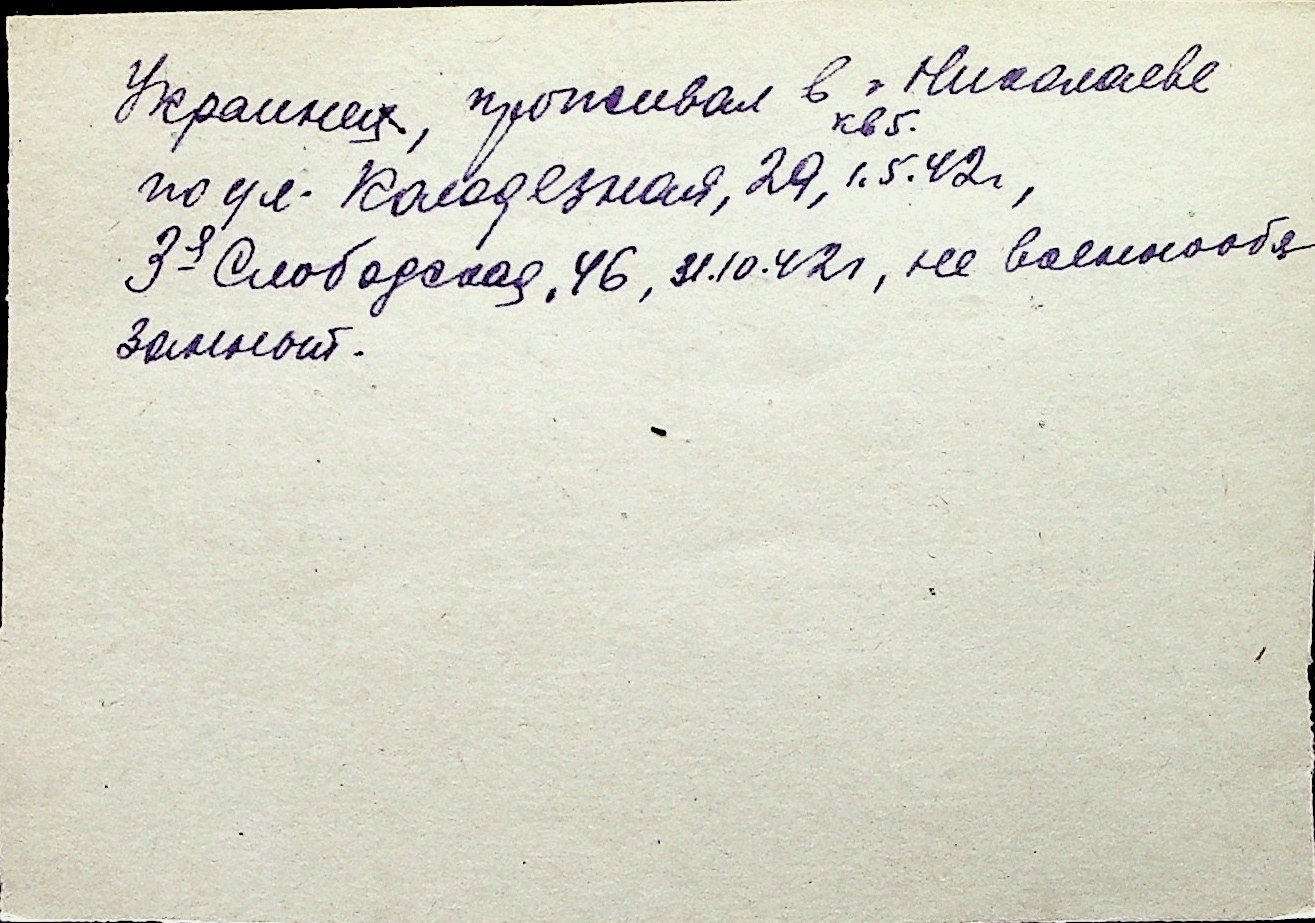 Украинец, проживал в г Николаеве
кв 5.
по ул. Колодезная, 29, 1.5.42г,
3-я Слободская, 46, 31.10.42г, не военнообя
занный.